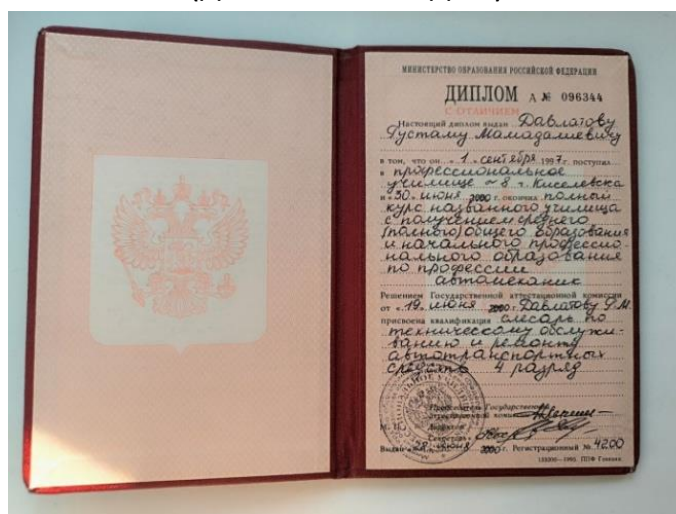 МИНИСТЕРСТВО ОБРАЗОВАНИЯ РОССИЙСКОЙ ФЕДЕРАЦИИ
ДИПЛОМ А № 096344
С ОТЛИЧИЕМ
Настоящий диплом выдан Давлатову
Рустаму Мамадалиевичу
в том, что он « 1 » сентября 1997 г. поступил
в профессиональное
училище № 8 г. Киселевска
и « 30 » июня 2000 г. окончил полный
курс названного училища
с получением среднего
(полного) общего образования
и начального профессио-
нального образования
по профессии
автомеханик
Решением Государственной аттестационной комиссии
от « 19 » июня 2000 г. Давлатову Р.М.
присвоена квалификация слесарь по
техническому обслужи-
ванию и ремонту
автотранспортных
средств 4 разряд
Председатель Государственной
аттестационной комиссии
М. П. Директор
Секретарь
Выдан июня 2000 г. Регистрационный № 4200